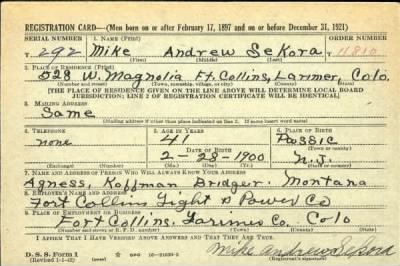 REGISTRATION CARD—(Men born on or after February 17, 1897 and on or before December 31, 1921)
SERIAL NUMBER 1. NAME (Print) ORDER NUMBER
T 292 Mike Andrew Sekora 11810
(First) (Middle) (Last)
2. PLACE OF RESIDENCE (Print)
528 W. Magnolia Ft. Collins, Larimer, Colo.
(Number and street) (Town, township, village, or city) (County) (State)
[THE PLACE OF RESIDENCE GIVEN ON THE LINE ABOVE WILL DETERMINE LOCAL BOARD
JURISDICTION; LINE 2 OF REGISTRATION CERTIFICATE WILL BE IDENTICAL]
3. MAILING ADDRESS
Same
[Mailing address if other than place indicated on line 2. If same insert word same]
4. TELEPHONE 5. AGE IN YEARS 6. PLACE OF BIRTH
none 41 Passic
DATE OF BIRTH (Town or county)
2-28-1900 N.J.
(Exchange) (Number) (Mo.) (Day) (Yr.) (State or country)
7. NAME AND ADDRESS OF PERSON WHO WILL ALWAYS KNOW YOUR ADDRESS
Agness Koffman Bridger Montana
8. EMPLOYER'S NAME AND ADDRESS
Fort Collins Light & Power Co
9. PLACE OF EMPLOYMENT OR BUSINESS
Fort Collins. Larimer Co. Colo
(Number and street or R. F. D. number) (Town) (County) (State)
I AFFIRM THAT I HAVE VERIFIED ABOVE ANSWERS AND THAT THEY ARE TRUE.
D. S. S. Form 1
(Revised 1-1-42) GPO 16-21630-2
Mike Andrew Sekora